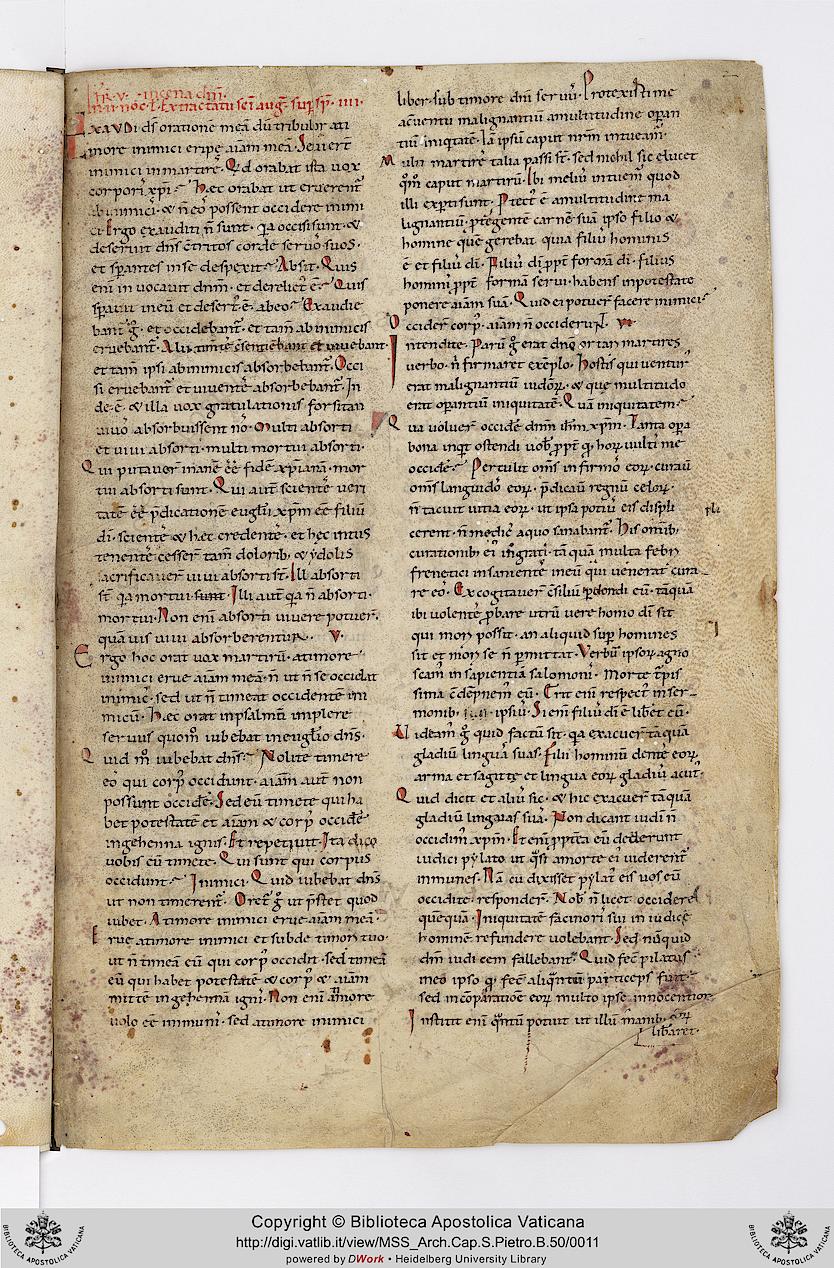 Fr̄. v. in cena dn̄i.
in .ii. noc̄. l. Ex tractatu sc̄i auḡ. sup ps̄. iiii.
Exaudi ds̄ oratione meā dū tribulor a ti
more inimici eripe aīam meā. Seuiert̄
inimici in martires. Qd̄ orabat ista uox
corporis xp̄i. Hec orabat ut eruerent̄
ab inimicis. & n̄ eos possent occidere inimi
ci. Ergo exauditi n̄ sunt. qa occisi sunt. &
deseruit dn̄s c̄tritos corde seruos suos.
et sperantes in se despexit. Absit. Quis
eni inuocauit dnm̄. et derelictus ē. Quis
sperauit in eū et desertus ē. ab eo. Exaudie
bant̄ g̊. et occidebant̄. et tam̄ ab inimicis
eruebant̄. Alii timētes c̄sentiebant et uiuebant
et tam̄ ipsi ab inimicis absorbebant̄. Occi
si eruebant̄ et uiuentes absorbebant̄. In
de ē. & illa uox gratulationis forsitan
uiuos absorbuissent nos. Multi absorti
et uiui absorti. multi mortui absorti.
Qui putauer̄ inanē ēē fidē xp̄ianā. mor
tui absorti sunt. Qui aut̄ scientes ueri
tatē ēē p̄dicationē euglīi xp̄m ēē filiū
dī. scientes & hec credentes. et hec intus
tenentes cesser̄ tam̄ dolorib; & ydolis
sacrificauer̄ uiui absorti st̄. Illi absorti
st̄. qa mortui sunt. Illi aut̄ qa n̄ absorti.
mortui. Non eni absorti uiuere potuer̄.
quāuis uiui absorberentur. v.
Ergo hoc orat uox martirū. a timore
inimici erue aīam meā. n̄ ut n̄ se occidat
inimic̄. sed ut n̄ timeat occidentem ini
micū. Hec orat in psalmū implere
seruus quom̊ iubebat in euglīo dn̄s.
Quid m̊ iubebat dn̄s. Nolite timere
eos qui corp̄ occidunt. aīam aut̄ non
possunt occidē. Sed eū timete qui ha
bet potestatē et aīam & corp̄ occidē
in gehenna ignis. Et repetiuit. Ita dico
uobis eū timete. Qui sunt qui corpus
occidunt. Inimici. Quid iubebat dn̄s
ut non timerent̄. Oret̄ g̊ ut p̄stet quod
iubet. A timore inimici erue aīam meā.
Erue a timore inimici et subde timori tuo.
ut n̄ timeā eū qui corp̄ occidit. sed timeā
eū qui habet potestatē & corp̄ & aīam
mittē in gehennā ignis. Non eni a timore
uolo eē immunis. sed a timore inimici
liber. sub timore dn̄i seruus. Protexisti me
a c̄uentu malignantiū a multitudine operan
tiū iniq̄tatē. Iā ipsū caput nr̄m intueam̄.
Multi martires talia passi st̄. sed nichil sic elucet
qm̊ caput martirū. Ibi melius intuem̄ quod
illi experti sunt. Ptect̄ ē a multitudine ma
lignantiū. ptegente carnē suā ipso filio &
homine quē gerebat. quia filius hominis
ē et filius dī. Filius dī ppt̄ formā dī. filius
hominis ppt̄ formā serui. habens in potestate
ponere aīam suā. Quid ei potuer̄ facere inimici.
Occider̄ corp̄. aīam n̄ occiderunt. vi.
Intendite. Parū g̊ erat dnō ortari martires
uerbo. n̄ firmaret exēplo. Nostis qui uentus
erat malignantiū iudeorū. & que multitudo
erat operantiū iniquitatē. Quā iniquitatem.
Qua uoluer̄ occidē dnm̄ ihm̄ xp̄m. Tanta opera
bona inq̄t ostendi uob̄ ppt̄ q̄ horū uultis me
occidē. Pertulit om̄s infirmos eorū. curauit
om̄s languidos eorū. p̄dicauit regnū celorū.
n̄ tacuit uitia eorū. ut ipsa potius eis displi
cerent. n̄ medicus a quo sanabant̄. His omib;
curationib; eius ingrati. tāquā multa febri
frenetici insanientes in eū qui uenerat cura
re eos. Excogitauer̄ c̄silium perdendi eū. tāquā
ibi uolentes p̄bare utrū uere homo dī sit
qui mori possit. an aliquid super homines
sit et mori se n̄ permittat. Verbū ipsorū agnosc
in sapientia salomonis. Morte turpis
sima c̄dēpnem̄ eū. Erit eni respectus in ser
monib; ipsius. Si eni filius dī ē liberet eū.
Videam̄ g̊ quid factū sit. qa exacuer̄ tāquā
gladiū linguas suas. Filii hominū dentes eorū
arma et sagitte et lingua eorū gladius acut̄.
Quid dicit et alius sic. & hic exacuer̄ tāquā
gladiū linguas suas. Non dicant iudei n̄
occidim̄ xp̄m. Et eni ppt̄ea eū dederunt
iudici pylato ut q̄si a morte ei uiderent̄
inmunes. Nā cū dixisset pylat̄ eis uos eū
occidite. responder̄. Nob̄ n̄ licet occidere
quēquā. Iniquitatē facinoris sui in iudicē
hominē refundere uolebant. Sed nunquid
dm̄ iudicem fallebant. Quid fec̄ pilatus
in eo ipso q̄ fec̄ aliq̄ntū particeps fuit.
sed in cōparatione eorū multo ipse innocentior
Institit eni q̄ntū potuit ut illū ex manib; eorū
liberaret.
Copyright © Biblioteca Apostolica Vaticana
http://digi.vatlib.it/view/MSS_Arch.Cap.S.Pietro.B.50/0011
powered by DWork • Heidelberg University Library
BIBLIOTECA APOSTOLICA VATICANA
BIBLIOTECA APOSTOLICA VATICANA